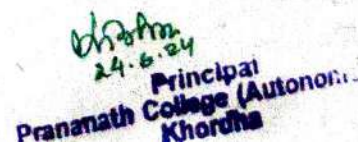 24.6.24
Principal
Prananath College (Autonom
Khordha